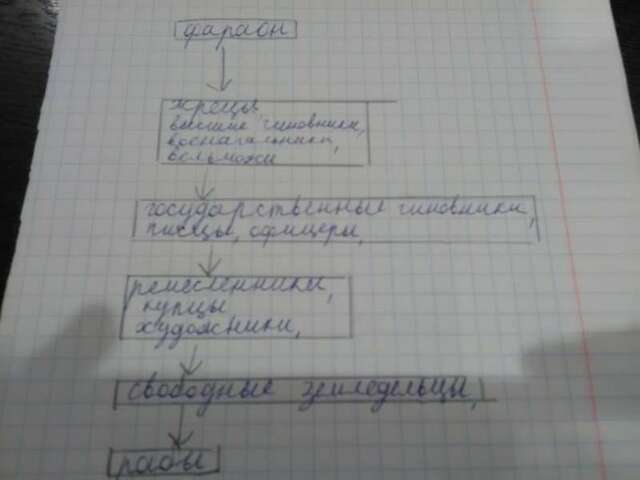 фараон
жрецы,
высшие чиновники,
военачальники,
вельможи
государственные чиновники,
писцы, офицеры,
ремесленники,
купцы
художники,
свободные земледельцы,
рабы